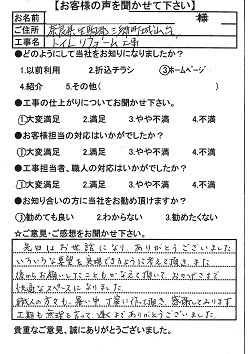 【お客様の声を聞かせて下さい】
お名前 様
ご住所 奈良県生駒郡三郷町城山台
工事名 トイレリフォーム工事
●どのようにして当社をお知りになりましたか?
1.以前利用 2.折込チラシ ③ホームページ
4.紹介 5.その他( )
●工事の仕上がりについてお聞かせ下さい。
①大変満足 2.満足 3.やや不満 4.不満
●お客様担当の対応はいかがでしたか?
①大変満足 2.満足 3.やや不満 4.不満
●工事担当者、職人の対応はいかがでしたか?
①大変満足 2.満足 3.やや不満 4.不満
●お知り合いの方に当社をお勧め頂けますか?
①勧めても良い 2.わからない 3.勧めたくない
☆ご意見・ご感想をお聞かせ下さい。
先日はお世話になり、ありがとうございました
いろいろな要望を実現できるように考えて頂き、また
後からお願いしたこともかなえて頂いて、おかげさまで
快適なスペースになりました
職人の方々も、暑い中丁寧に作って頂き、感謝しております
工期も無理を言って、遅くまでありがとうございました。
貴重なご意見、誠にありがとうございました。